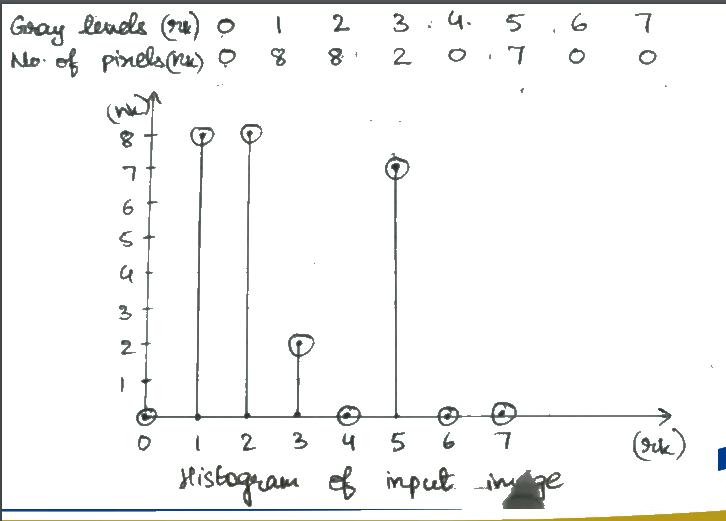 Gray levels (rk) 0 1 2 3 4 5 6 7
No. of pixels (nk) 0 8 8 2 0 7 0 0
(nk)
8
7
6
5
4
3
2
1
0 1 2 3 4 5 6 7 (rk)
Histogram of input image